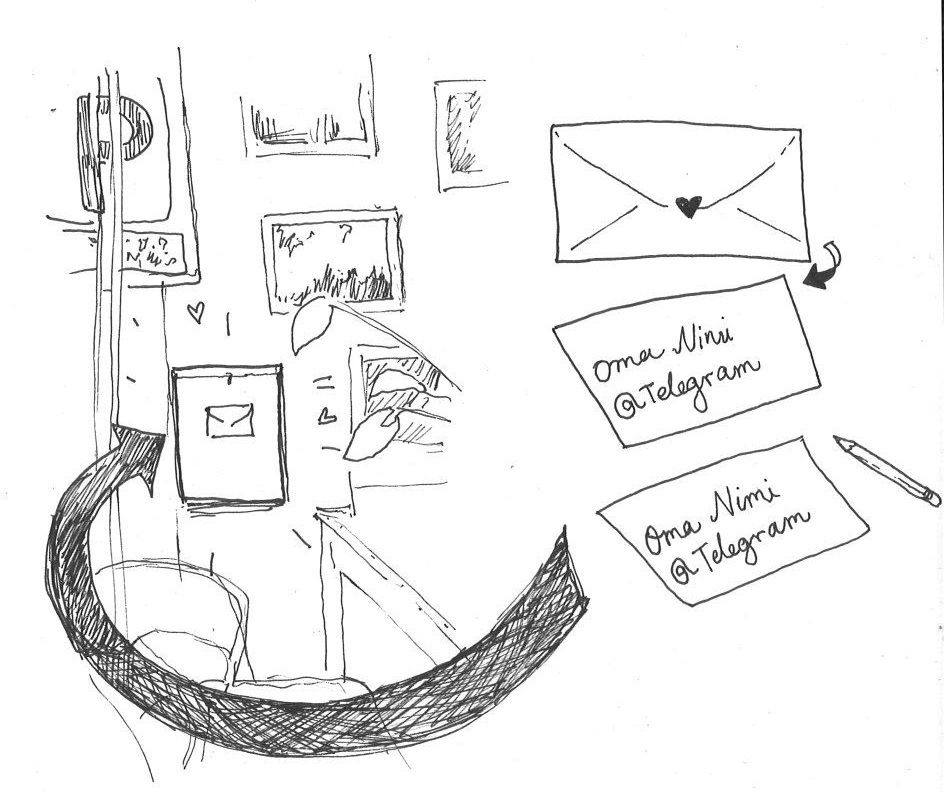 Oma Nimi
@Telegram
Oma Nimi
@Telegram